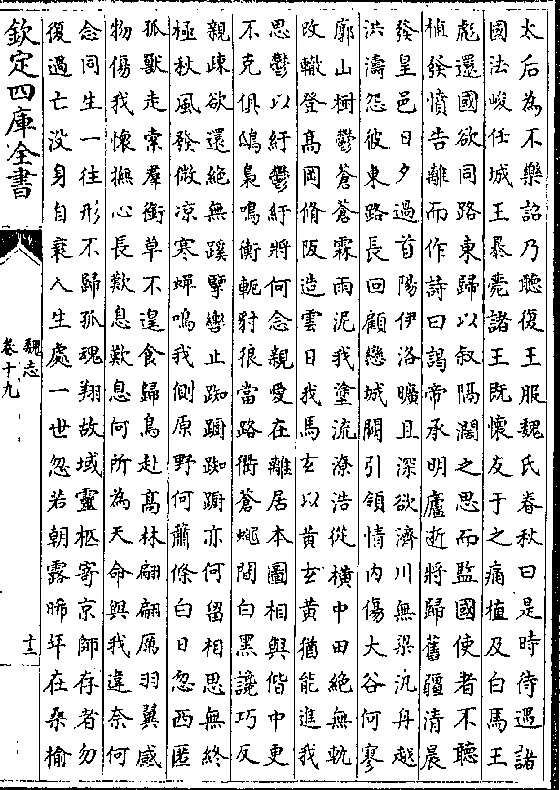 太后為不樂詔乃聽復王服魏氏春秋曰是時待遇諸
國法峻任城王暴薨諸王既懷友于之痛植及白馬王
彪還國欲同路東歸以叙隔濶之思而監國使者不聽
植發憤告離而作詩曰謁帝承明廬逝將歸舊疆清晨
發皇邑日夕過首陽伊洛曠且深欲濟川無梁汎舟越
洪濤怨彼東路長回顧戀城闕引領情内傷大谷何寥
廓山樹鬱蒼蒼霖雨泥我塗流潦浩從橫中田絶無軌
改轍登髙岡脩阪造雲日我馬玄以黄玄黄猶能進我
思鬱以紆鬱紆將何念親愛在離居本圖相與偕中更
不克俱鴟梟鳴衡軛豺狼當路衢蒼蠅間白黑讒巧反
親疎欲還絶無蹊擥轡止踟蹰踟蹰亦何留相思無終
極秋風發微凉寒蟬鳴我側原野何蕭條白日忽西匿
孤獸走索羣銜草不遑食歸鳥赴髙林翩翩厲羽翼感
物傷我懷撫心長歎息歎息何所為天命與我違奈何
念同生一往形不歸孤魂翔故域靈柩寄京師存者勿
復過亡没身自衰人生處一世忽若朝露晞年在桑榆
欽定四庫全書
魏志
卷十九
十三